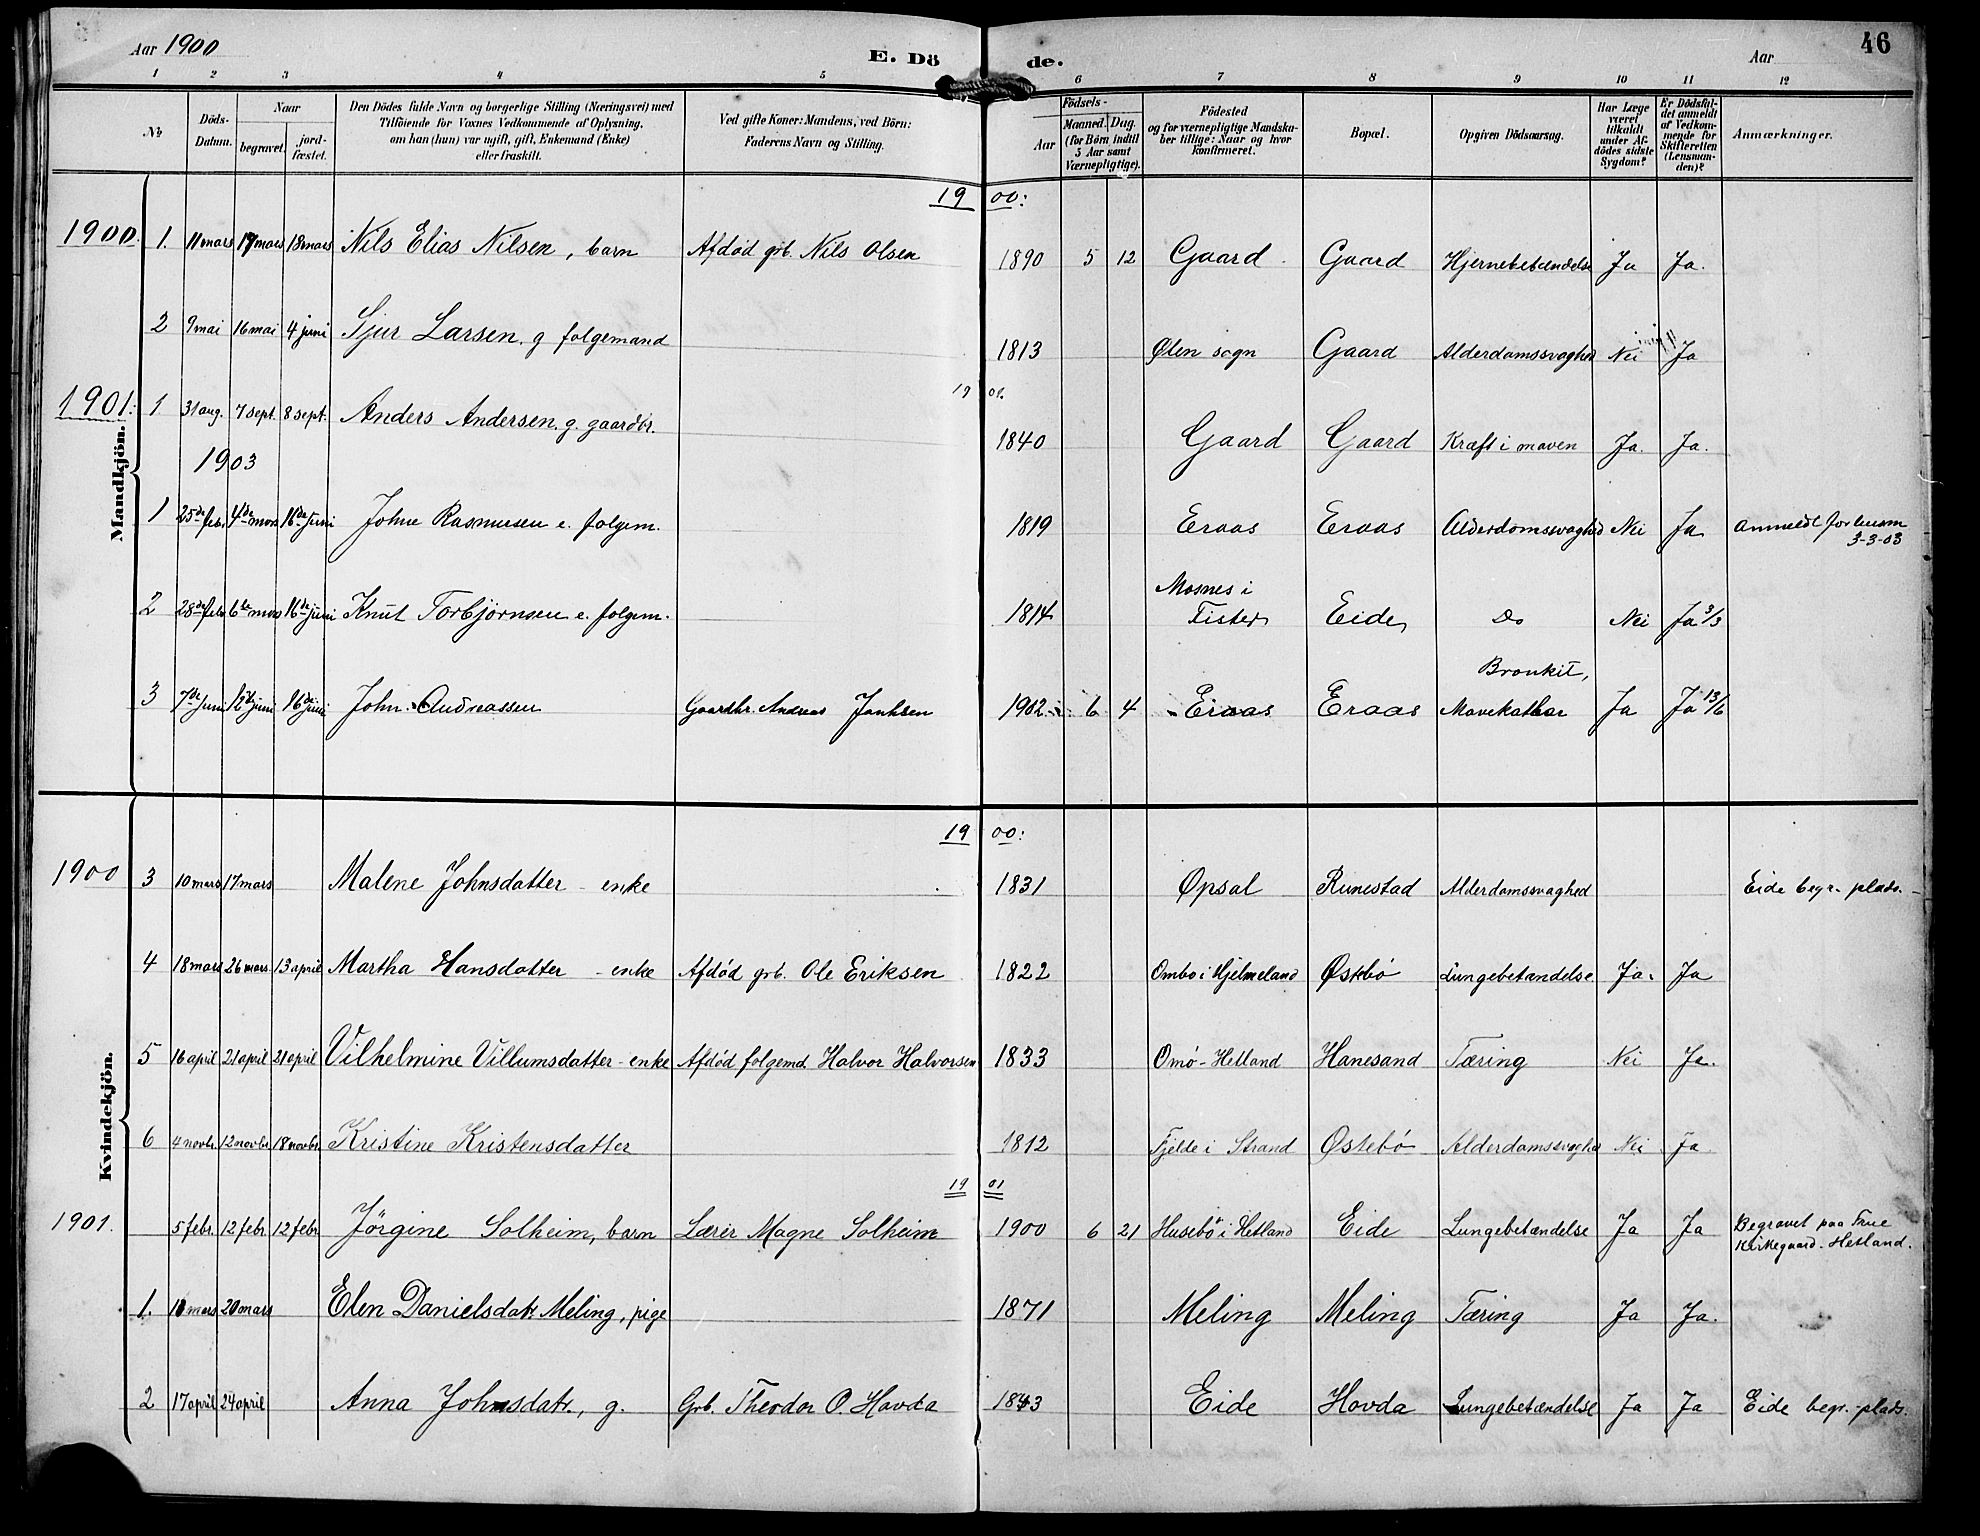 Aar 1900 E. Dö de. Aar 46
1 2 3 4 5 6 7 8 9 10 11 12
No Döds-Datum. Naar begravet. jord-fæstet. Den Dödes fulde Navn og borgerlige Stilling (Næringsvei) med Tilföiende for Voxnes Vedkommende af Oplysning, om han (hun) var ugift, gift, Enkemand (Enke) eller fraskilt. Ved gifte Koner: Mandens, ved Börn: Faderens Navn og Stilling. Födsels- Aar Maaned. Dag. (for Börn indtil 5 Aar samt Værnepligtige). Födested og for værnepligtige Mandskaber tillige: Naar og hvor konfirmeret. Bopæl. Opgiven Dödsaarsag. Har Læge været tilkaldt under Afdödes sidste Sygdom? Er Dödsfaldet anmeldt af Vedkommende for Skifteretten (Lensmanden)? Anmærkninger.
19 00:
Mandkjön.
1900. 1. 11 mars 17 mars 18 mars Nils Elias Nilsen, barn Afdød grb. Nils Olsen 1890 5 12 Gaard Gaard Hjernebetændelse Ja Ja.
2 9 mai 16 mai 4 juni Sjur Larsen. g folgemand 1813 Ølen sogn Gaard Alderdomssvaghed Nei Ja
19 01.
1901: 1 31 aug. 7 sept. 8 sept. Anders Andersen. g. gaardbr. 1840 Gaard Gaard Kræft i maven Ja. Ja.
1903
1 25de feb. 4de mars 16de juni Johne Rasmusen e. folgem. 1819 Eraas Eraas Alderdomssvaghed Nei Ja Anmeldt for lensm 3-3-03
2 28de feb 6te mars 16de juni Knut Torbjørnsen e. folgem. 1814 Mosnes i Fister Eide Do Nei Ja 3/3
3 7de juni 12te juni 16de juni John Andreassen Gaardbr. Andreas 1902 6 4 Eraas Eraas Bronkit, Mavekatar Ja Ja 13/6
19 00:
Kvindekjön.
1900 3 10 mars 17 mars Malene Johnsdatter - enke 1831 Opsal Runestad Alderdomssvaghed Eide begr. plads.
4 18 mars 26 mars. 13 april Martha Hansdatter - enke Afdød grb. Ole Eriksen 1822 Ombo i Hjelmeland Østebø Lungebetændelse. Ja. Ja
5 16 april 21 april 21 april Vilhelmine Villumsdatter - enke Afdød folgemd. Halvor Halvorsen 1833 Omø - Hetland Hanesand Tæring Nei Ja.
6 4 novbr. 12 novbr. 18 novbr. Kristine Kristensdatter 1812 Fjelde i Strand Østebø Alderdomssvaghed Nei Ja
19 01
1901. 5 febr. 12 febr. 12 febr. Jørgine Solheim, barn Lærer Magne Solheim 1900 6 21 Husebø i Hetland Eide Lungebetændelse Ja Ja Begravet paa Frue Kirkegaard. Hetland.
1. mars 20 mars Elen Danielsdatr. Meling, pige 1871 Meling Meling Tæring Ja Ja.
2 17 april 24 april Anna Johnsdatr., g. Grb. Theodor O. Hovda 1843 Eide Hovda Lungebetændelse Ja Ja Eide begr.-plads.